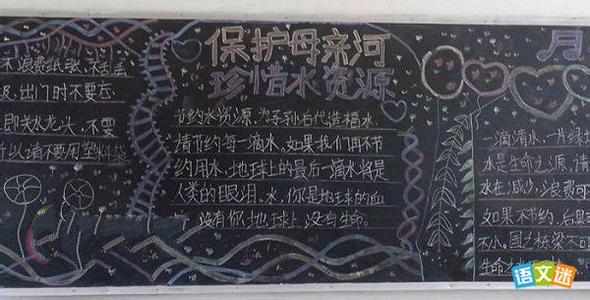 不浪费纸张、不乱丢
出门时不要忘
即关水龙头,不要
所以请不要用塑料袋
保护母亲河
珍惜水资源
节约水资源,为子孙后代造福水.
请节约每一滴水,如果我们再不节
约用水,地球上的最后一滴水将是
人类的眼泪。水,你是地球的血
没有你,地球上没有生命。
月
一滴清水,一片绿
水是生命之源,请
水在减少,浪费可
如果不节约,后果
不小。国之栋梁不可
生命之
语文迷